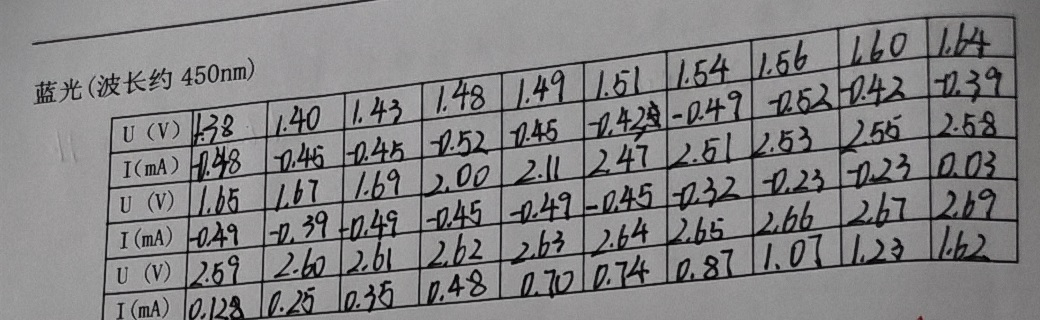 蓝光(波长约 450nm)
U (V) 1.38 1.40 1.43 1.48 1.49 1.51 1.54 1.56 1.60 1.64
I(mA) -0.48 -0.45 -0.45 -0.52 -0.45 -0.42 -0.49 -0.52 -0.42 -0.39
U (V) 1.65 1.67 1.69 2.00 2.11 2.47 2.51 2.53 2.55 2.58
I(mA) -0.49 -0.39 -0.49 -0.45 -0.49 -0.45 -0.32 -0.23 -0.23 0.03
U (V) 2.59 2.60 2.61 2.62 2.63 2.64 2.65 2.66 2.67 2.69
I(mA) 0.128 0.25 0.35 0.48 0.70 0.74 0.87 1.07 1.23 1.62